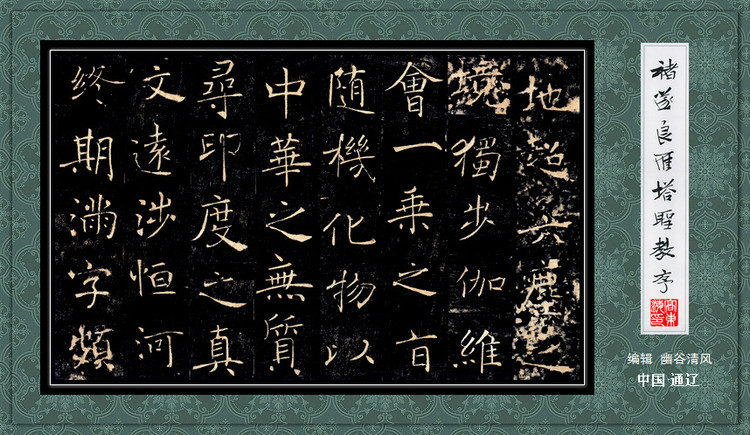 地超六塵之
境獨步伽維
會一乘之旨
随機化物以
中華之無質
尋印度之真
文遠涉恒河
終期滿字頻
褚遂良雁塔聖教序
编辑 幽谷清风
中国·通辽